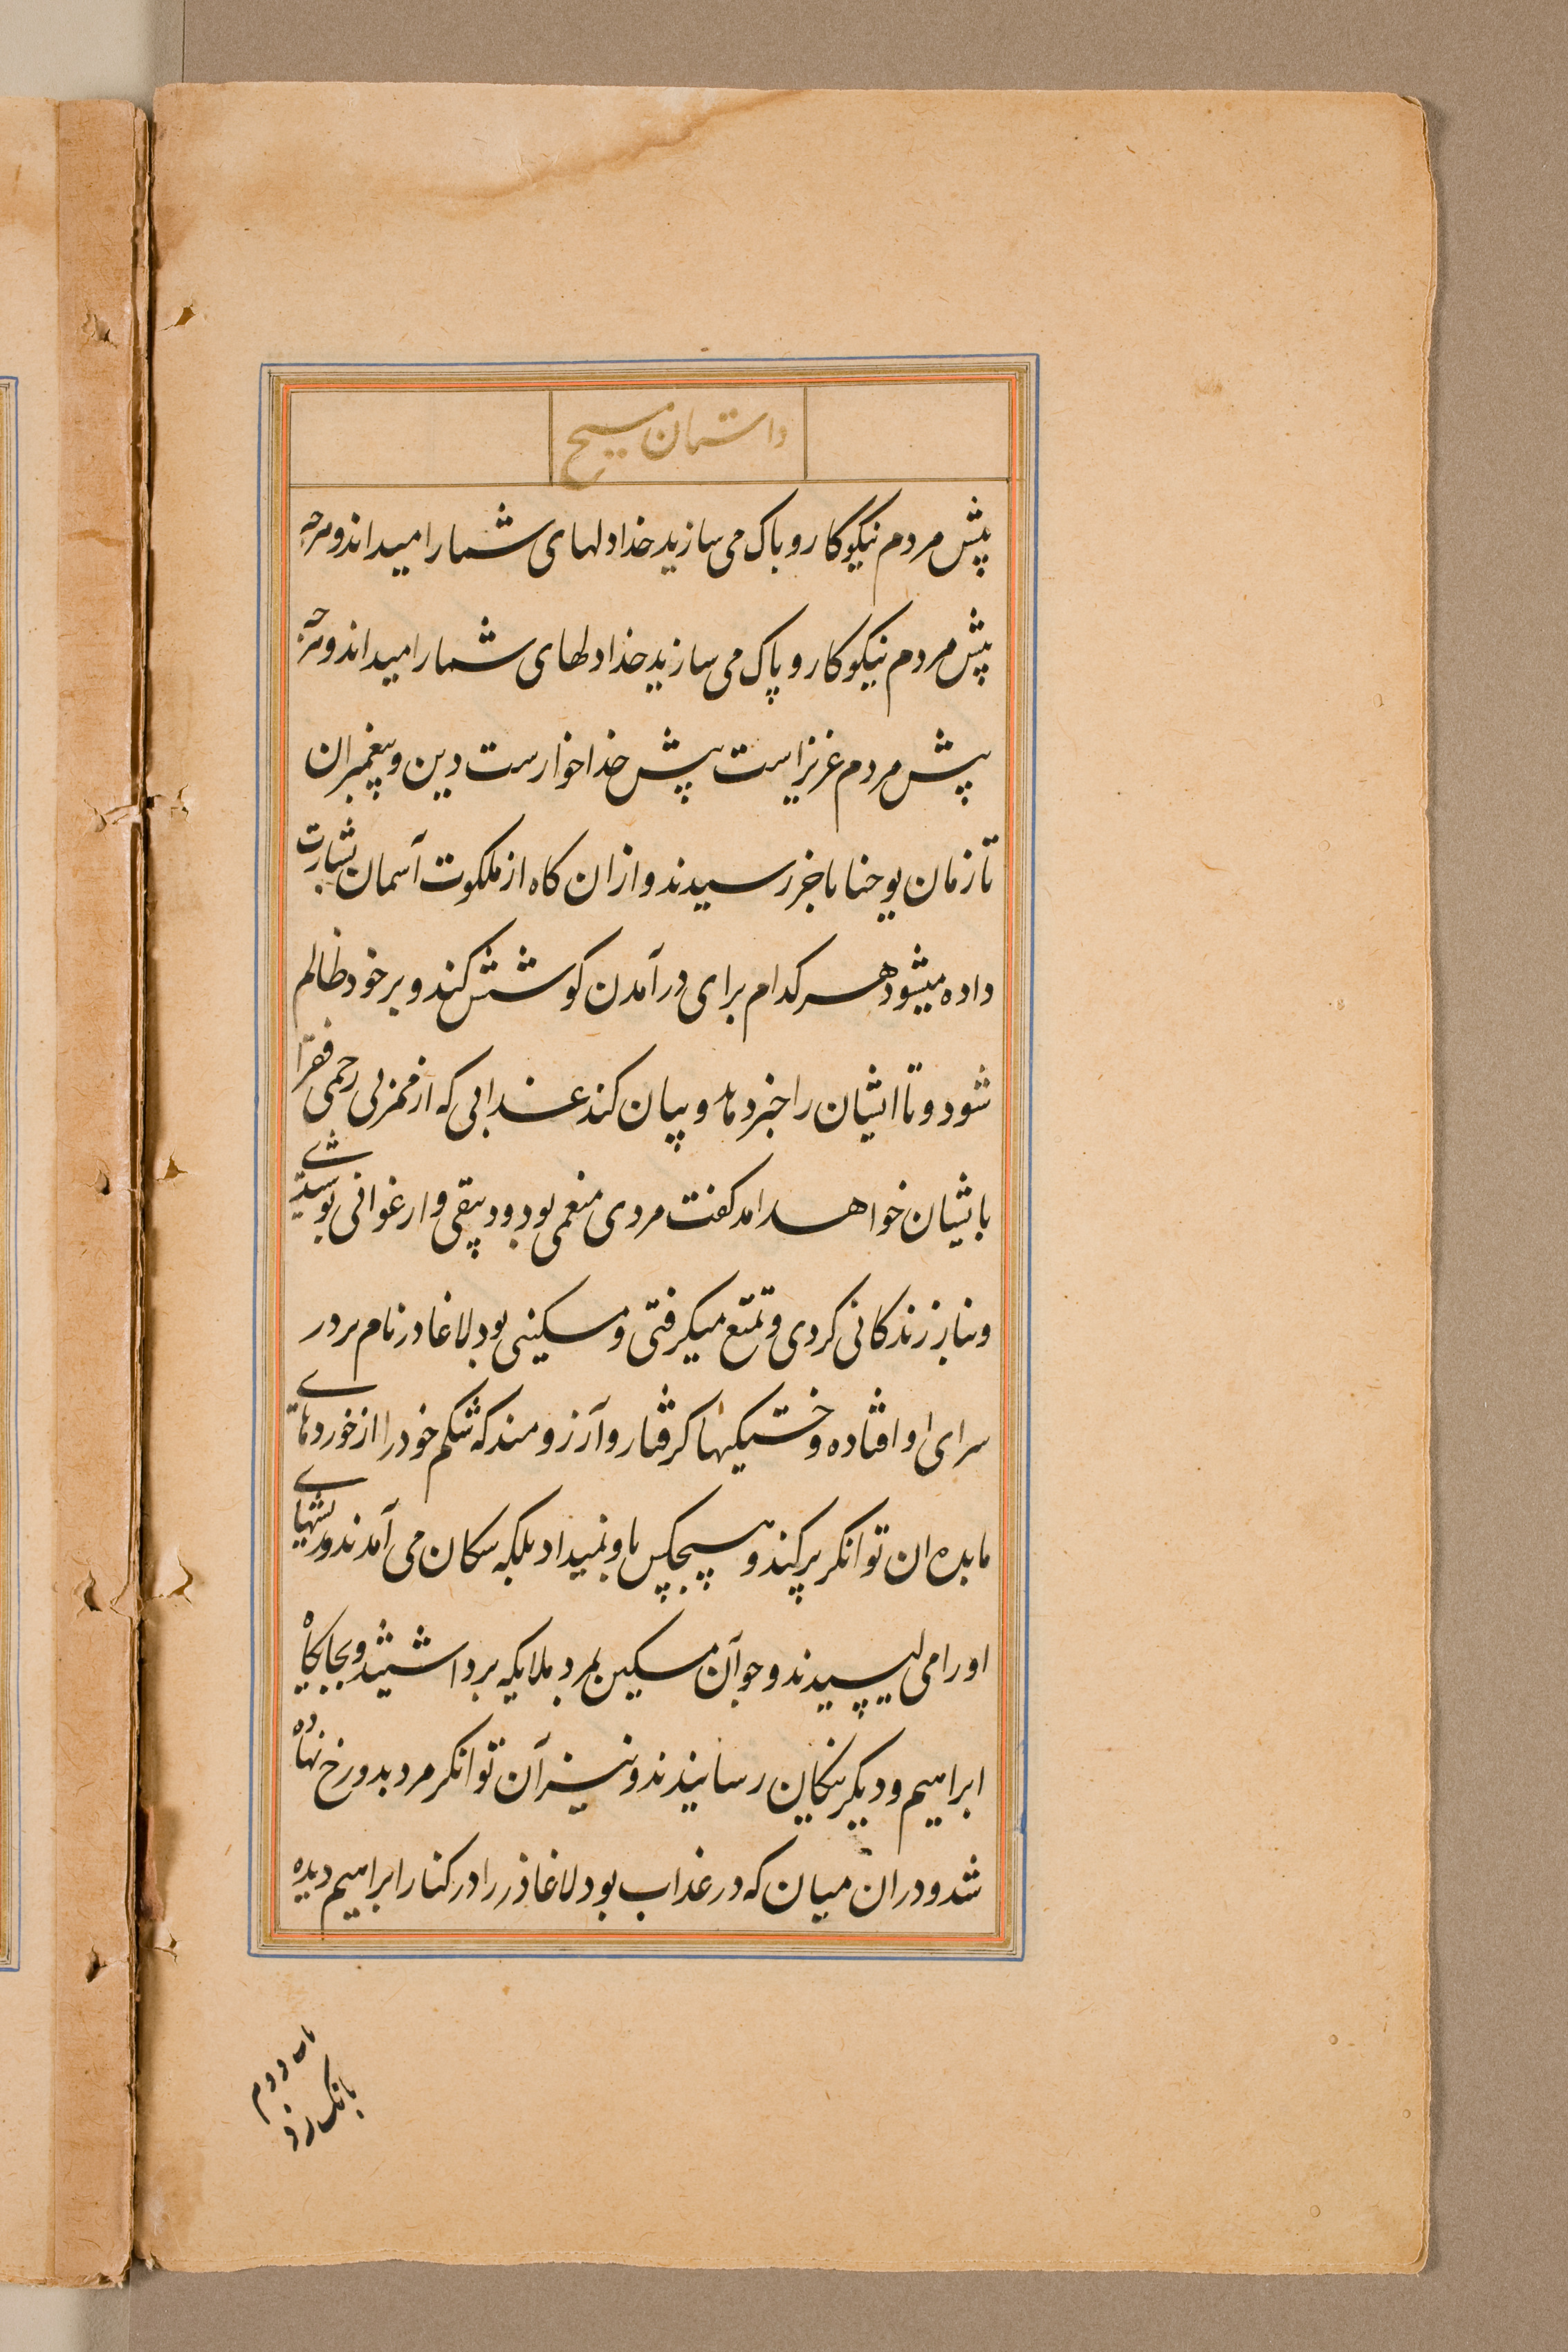 داستان مسیح
پیش مردم نیکو کار و باک می سازید خدا دلهای شما را میداند و هرچه
پیش مردم نیکو کار و پاک می سازید خدا دلهای شما را میداند و هرچه
پیش مردم عزیز است پیش خدا خوارست دین و پیغمبران
تا زمان یوحنا باخر رسیدند و ازان کاه از ملکوت آسمان بشارت
داده میشود هر کدام برای در آمدن کوشش کند و بر خود ظالم
شود و تا ایشان را خبر دهد و بیان کند عذابی که از ممر بی رحمی فقرا
بایشان خواهد امد کفت مردی منعمی بود و دیبقی و ارغوانی بوشیدی
و بناز زندکانی کردی و تمتع میکرفتی و مسکینی بود لاغاذر نام بر در
سرای او افتاده و خستکیها کرفتار و آرزومند که شکم خود را از خوردهای
مایده ان توانکر پر کند و هیچکس باو نمیداد بلکه سکان می آمدند و ریشهای
او را می لیسیدند و چو آن مسکین بمرد ملایکه برداشتند و بجایکاه
ابراهیم و دیکر نیکان رسانیدند و نیز آن توانکر مرد بدوزخ نهاده
شد و دران میان که در عذاب بود لاغاذر را در کنار ابراهیم دیده
بانک زد